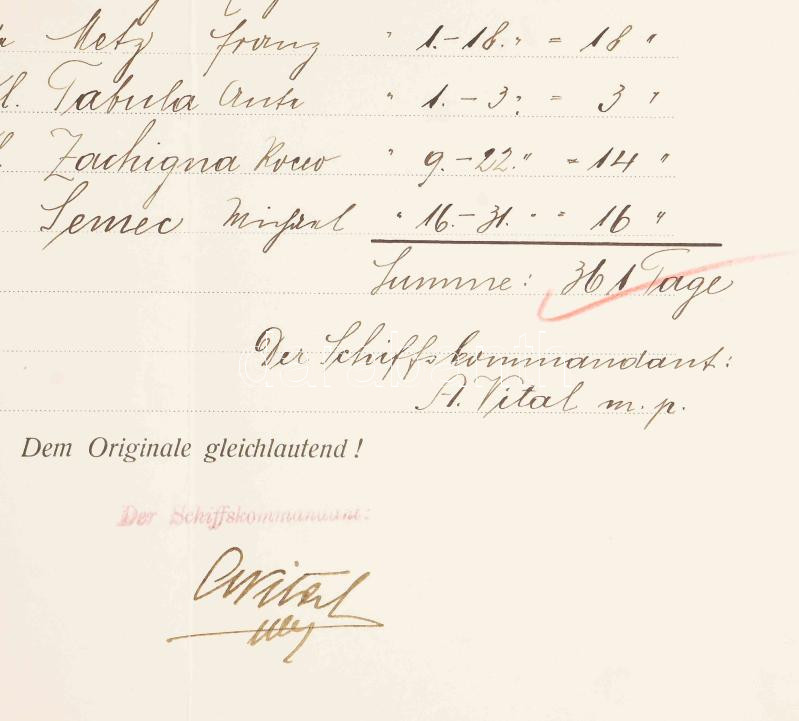 Metz Franz " 1.-18." = 18 "
Tabula Ante " 1.-3." = 3 "
Zachigna Rocco " 9.-22." = 14 "
Semec Michael " 16.-31." " 16 "
Summe: 361 Tage
Der Schiffskommandant:
A. Vital m. p.
Dem Originale gleichlautend!
Der Schiffskommandant:
AVital